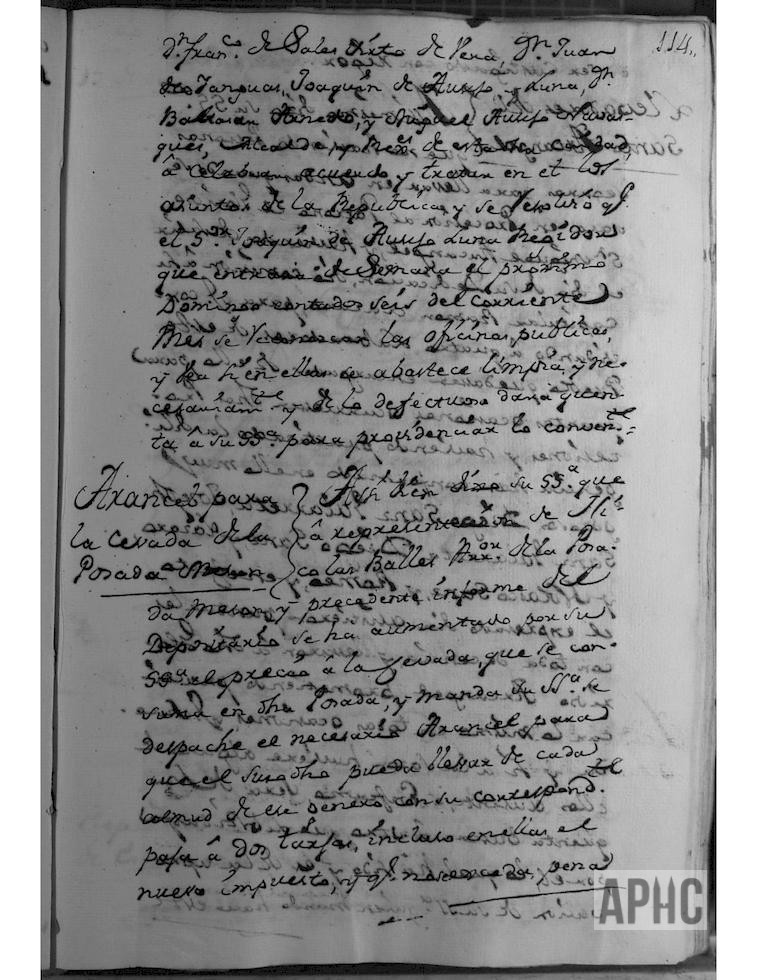 114,,
Dn. Franco. de Sales Sixto de Vera, Dn. Juan
Joaquin de Ausejo y Luna, Dn.
Baltasar y Miguel Ausejo Navar-
ques, Alcalde, y de esta Ciudad,
â celebrar acuerdo y tratar en el los
asuntos de la Republica, y se resolvió qe.
el Sor. Joaquin de Ausejo Luna Regidor
que entrará de Semana el proximo
Domingo contados seis del corriente
Mes se las oficinas publicas,
y en ellas se abastece limpia, y ne-
y de lo defectuoso dará quen-
ta â su SSa. para providenciar lo convente.=
Arancel para
la cevada de la
Posada Meson
su SSa. que
â representacion de Ni-
colas Balles Arror. de la Posa-
da Meson, y precedente informe del
Depositario se ha aumentado por su
SSa. el precio â la Zevada, que se con-
suma en dha Posada, y manda su SSa. se
despache el necesario Arancel para
que el susodho pueda llevar de cada
almud de ese genero con su correspondte.
paja â dos tarjas, incluso en ellas el
nuevo impuesto, y qe. no exceda, pena
APHC